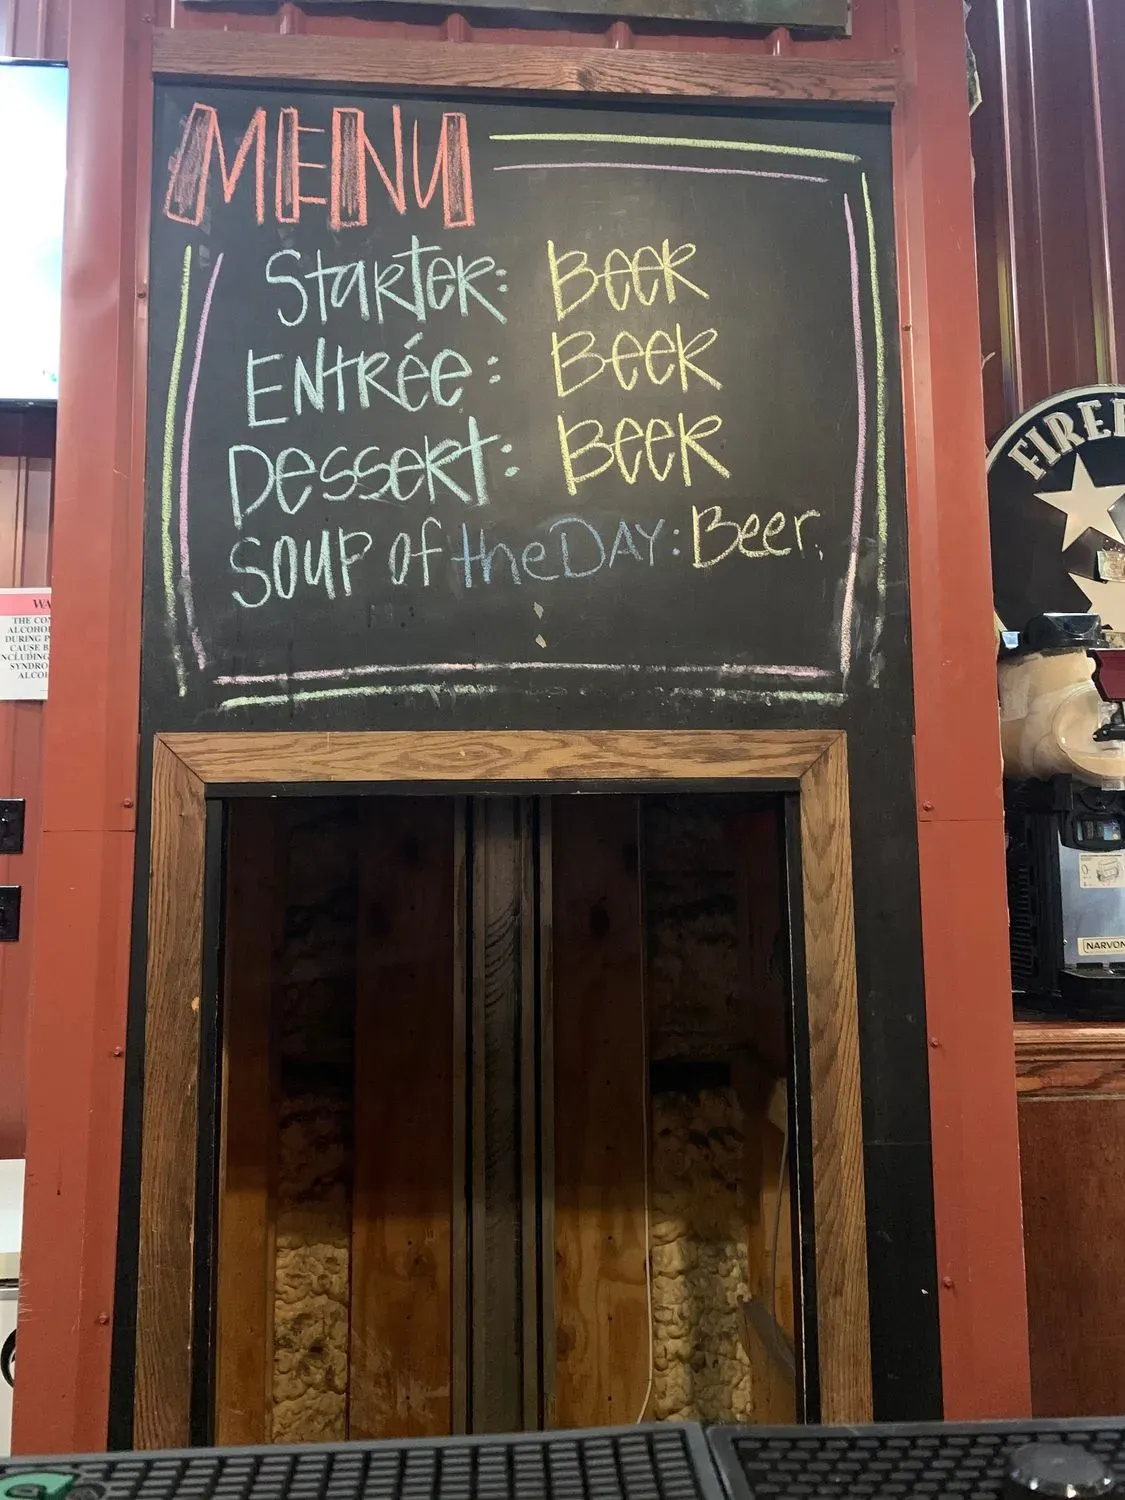 MENU
Starter: Beer
Entrée: Beer
Dessert: Beer
Soup of the DAY: Beer.
THE
ALCOHO
DURING
CAUSE
SYNDRO
ALCO
FIRE
NARVON